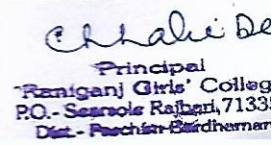 Chhabi De
Principal
Raniganj Girls' Colleg
P.O.- Searsole Rajbari, 71335
Dist. - Paschim Bardhaman